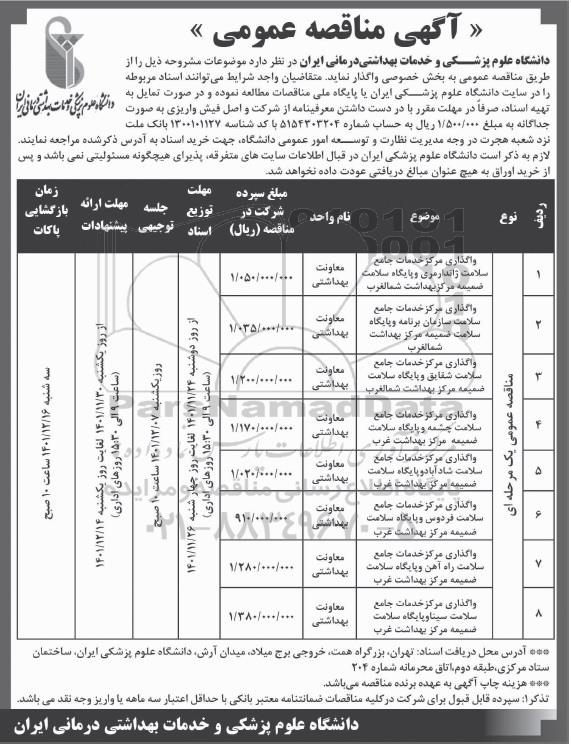 « آگهی مناقصه عمومی »
دانشگاه علوم پزشکی و خدمات بهداشتی درمانی ایران
دانشگاه علوم پزشکی و خدمات بهداشتی‌درمانی ایران در نظر دارد موضوعات مشروحه ذیل را از
طریق مناقصه عمومی به بخش خصوصی واگذار نماید. متقاضیان واجد شرایط می‌توانند اسناد مربوطه
را در سایت دانشگاه علوم پزشکی ایران یا پایگاه ملی مناقصات مطالعه نموده و در صورت تمایل به
تهیه اسناد، صرفاً در مهلت مقرر با در دست داشتن معرفینامه از شرکت و اصل فیش واریزی به صورت
جداگانه به مبلغ ۱/۵۰۰/۰۰۰ ریال به حساب شماره ۵۱۵۴۳۰۳۲۰۴ با کد شناسه ۱۳۰۰۱۰۱۱۲۷ بانک ملت
نزد شعبه هجرت در وجه مدیریت نظارت و توسعه امور عمومی دانشگاه، جهت خرید اسناد به آدرس ذکرشده مراجعه نمایند.
لازم به ذکر است دانشگاه علوم پزشکی ایران در قبال اطلاعات سایت های متفرقه، پذیرای هیچگونه مسئولیتی نمی باشد و پس
از خرید اوراق به هیچ عنوان مبالغ دریافتی عودت داده نخواهد شد.
ردیف نوع موضوع نام واحد مبلغ سپرده شرکت در مناقصه (ریال) مهلت توزیع اسناد جلسه توجیهی مهلت ارائه پیشنهادات زمان بازگشایی پاکات
مناقصه عمومی یک مرحله ای
۱ واگذاری مرکزخدمات جامع سلامت ژاندارمری وپایگاه سلامت ضمیمه مرکزبهداشت شمالغرب معاونت بهداشتی ۱/۰۵۰/۰۰۰/۰۰۰
۲ واگذاری مرکزخدمات جامع سلامت سازمان برنامه وپایگاه سلامت ضمیمه مرکز بهداشت شمالغرب معاونت بهداشتی ۱/۰۳۵/۰۰۰/۰۰۰
۳ واگذاری مرکزخدمات جامع سلامت شقایق وپایگاه سلامت ضمیمه مرکز بهداشت شمالغرب معاونت بهداشتی ۱/۲۰۰/۰۰۰/۰۰۰
۴ واگذاری مرکزخدمات جامع سلامت چشمه وپایگاه سلامت ضمیمه مرکز بهداشت غرب معاونت بهداشتی ۱/۱۷۰/۰۰۰/۰۰۰
۵ واگذاری مرکزخدمات جامع سلامت شادآبادوپایگاه سلامت ضمیمه مرکز بهداشت غرب معاونت بهداشتی ۱/۰۲۰/۰۰۰/۰۰۰
۶ واگذاری مرکزخدمات جامع سلامت فردوس وپایگاه سلامت ضمیمه مرکز بهداشت غرب معاونت بهداشتی ۹۱۰/۰۰۰/۰۰۰
۷ واگذاری مرکزخدمات جامع سلامت راه آهن وپایگاه سلامت ضمیمه مرکز بهداشت غرب معاونت بهداشتی ۱/۲۸۰/۰۰۰/۰۰۰
۸ واگذاری مرکزخدمات جامع سلامت سیناوپایگاه سلامت ضمیمه مرکز بهداشت غرب معاونت بهداشتی ۱/۳۸۰/۰۰۰/۰۰۰
از روز دوشنبه ۱۴۰۱/۱۱/۲۴ لغایت روز چهارشنبه ۱۴۰۱/۱۱/۲۶
(ساعت ۹ الی ۱۵:۳۰ روزهای اداری)
روز یکشنبه ۱۴۰۱/۱۲/۰۷ ساعت ۱۰ صبح
از روز یکشنبه ۱۴۰۱/۱۱/۳۰ لغایت روز یکشنبه ۱۴۰۱/۱۲/۱۴
(ساعت ۹ الی ۱۵:۳۰ روزهای اداری)
سه شنبه ۱۴۰۱/۱۲/۱۶ ساعت ۱۰ صبح
ParsNamadData
۰۲۱-۸۸۳۴۹۶۷۰-۵
*** آدرس محل دریافت اسناد: تهران، بزرگراه همت، خروجی برج میلاد، میدان آرش، دانشگاه علوم پزشکی ایران، ساختمان
ستاد مرکزی،طبقه دوم،اتاق محرمانه شماره ۲۰۴
*** هزینه چاپ آگهی به عهده برنده مناقصه می‌باشد.
تذکر۱: سپرده قابل قبول برای شرکت درکلیه مناقصات ضمانتنامه معتبر بانکی با حداقل اعتبار سه ماهه یا واریز وجه نقد می باشد.
دانشگاه علوم پزشکی و خدمات بهداشتی درمانی ایران